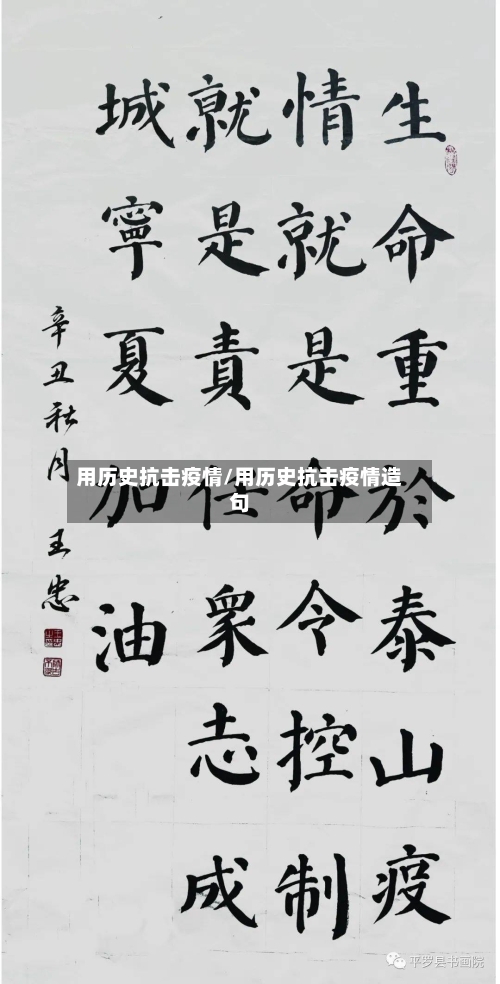 生命重於泰山疫
情就是命令控制
就是責任眾志成
城寧夏加油
辛丑秋月 王忠
用历史抗击疫情/用历史抗击疫情造
句
平罗县书画院